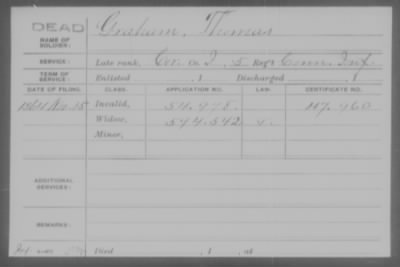 DEAD
Graham, Thomas
NAME OF
SOLDIER:
SERVICE:
Late rank, Cor. Co. I, 5 Reg't Conn. Inf.
TERM OF
SERVICE:
Enlisted , 1 Discharged , 1
DATE OF FILING. CLASS. APPLICATION NO. LAW. CERTIFICATE NO.
Invalid, 54.978. 117.960
Widow, 544.542
Minor,
ADDITIONAL
SERVICES:
REMARKS:
Died , 1 , at